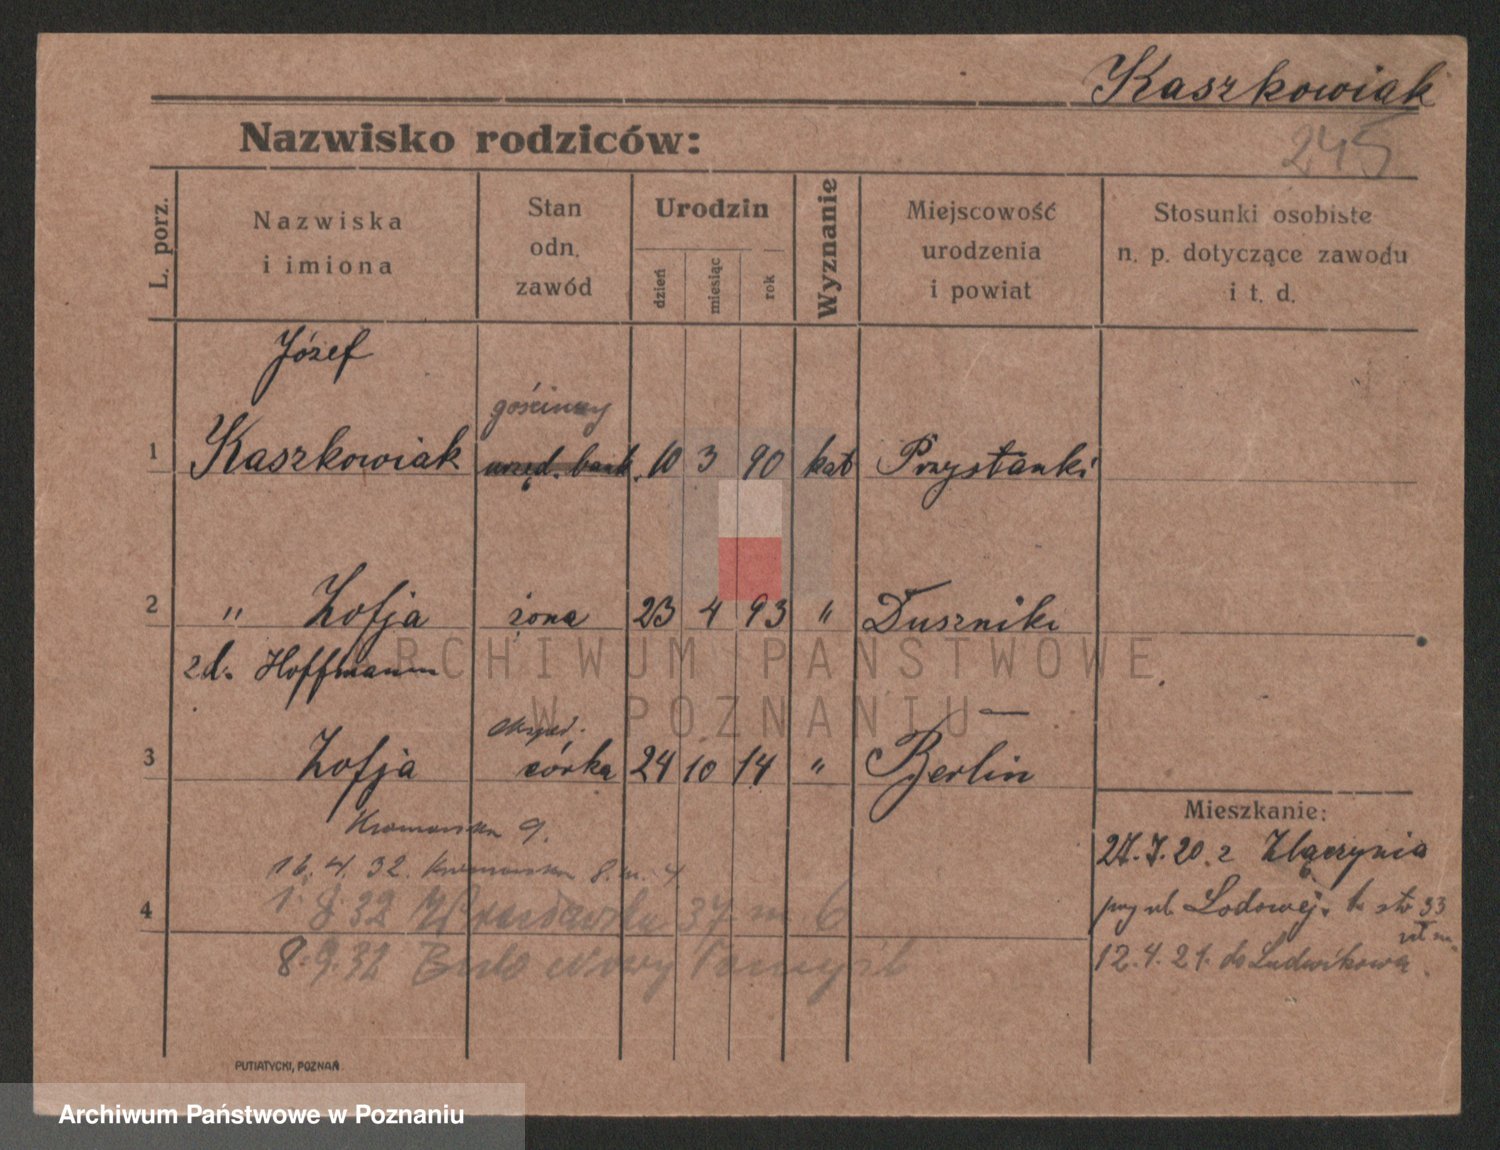 Kaszkowiak
245
Nazwisko rodziców:
L. porz.
Nazwiska
i imiona
Stan
odn.
zawód
Urodzin
dzień
miesiąc
rok
Wyznanie
Miejscowość
urodzenia
i powiat
Stosunki osobiste
n. p. dotyczące zawodu
i t. d.
Józef
gościnny
1 Kaszkowiak urzęd. bank. 10 3 90 kat Przystanki
2 " Zofja żona 23 4 93 " Duszniki
zd. Hoffmann
eksped.
3 Zofja córka 24 10 14 " Berlin
9.
16. 4. 32. 8. m. 4
4 1. 8. 32 37 m 6
8. 9. 32 Nowy Tomyśl
Mieszkanie:
27.7.20. z
przy ul. Lodowej. 33
12.4.21. do Ludwikowa
PUTIATYCKI, POZNAŃ
ARCHIWUM PAŃSTWOWE
W POZNANIU
Archiwum Państwowe w Poznaniu